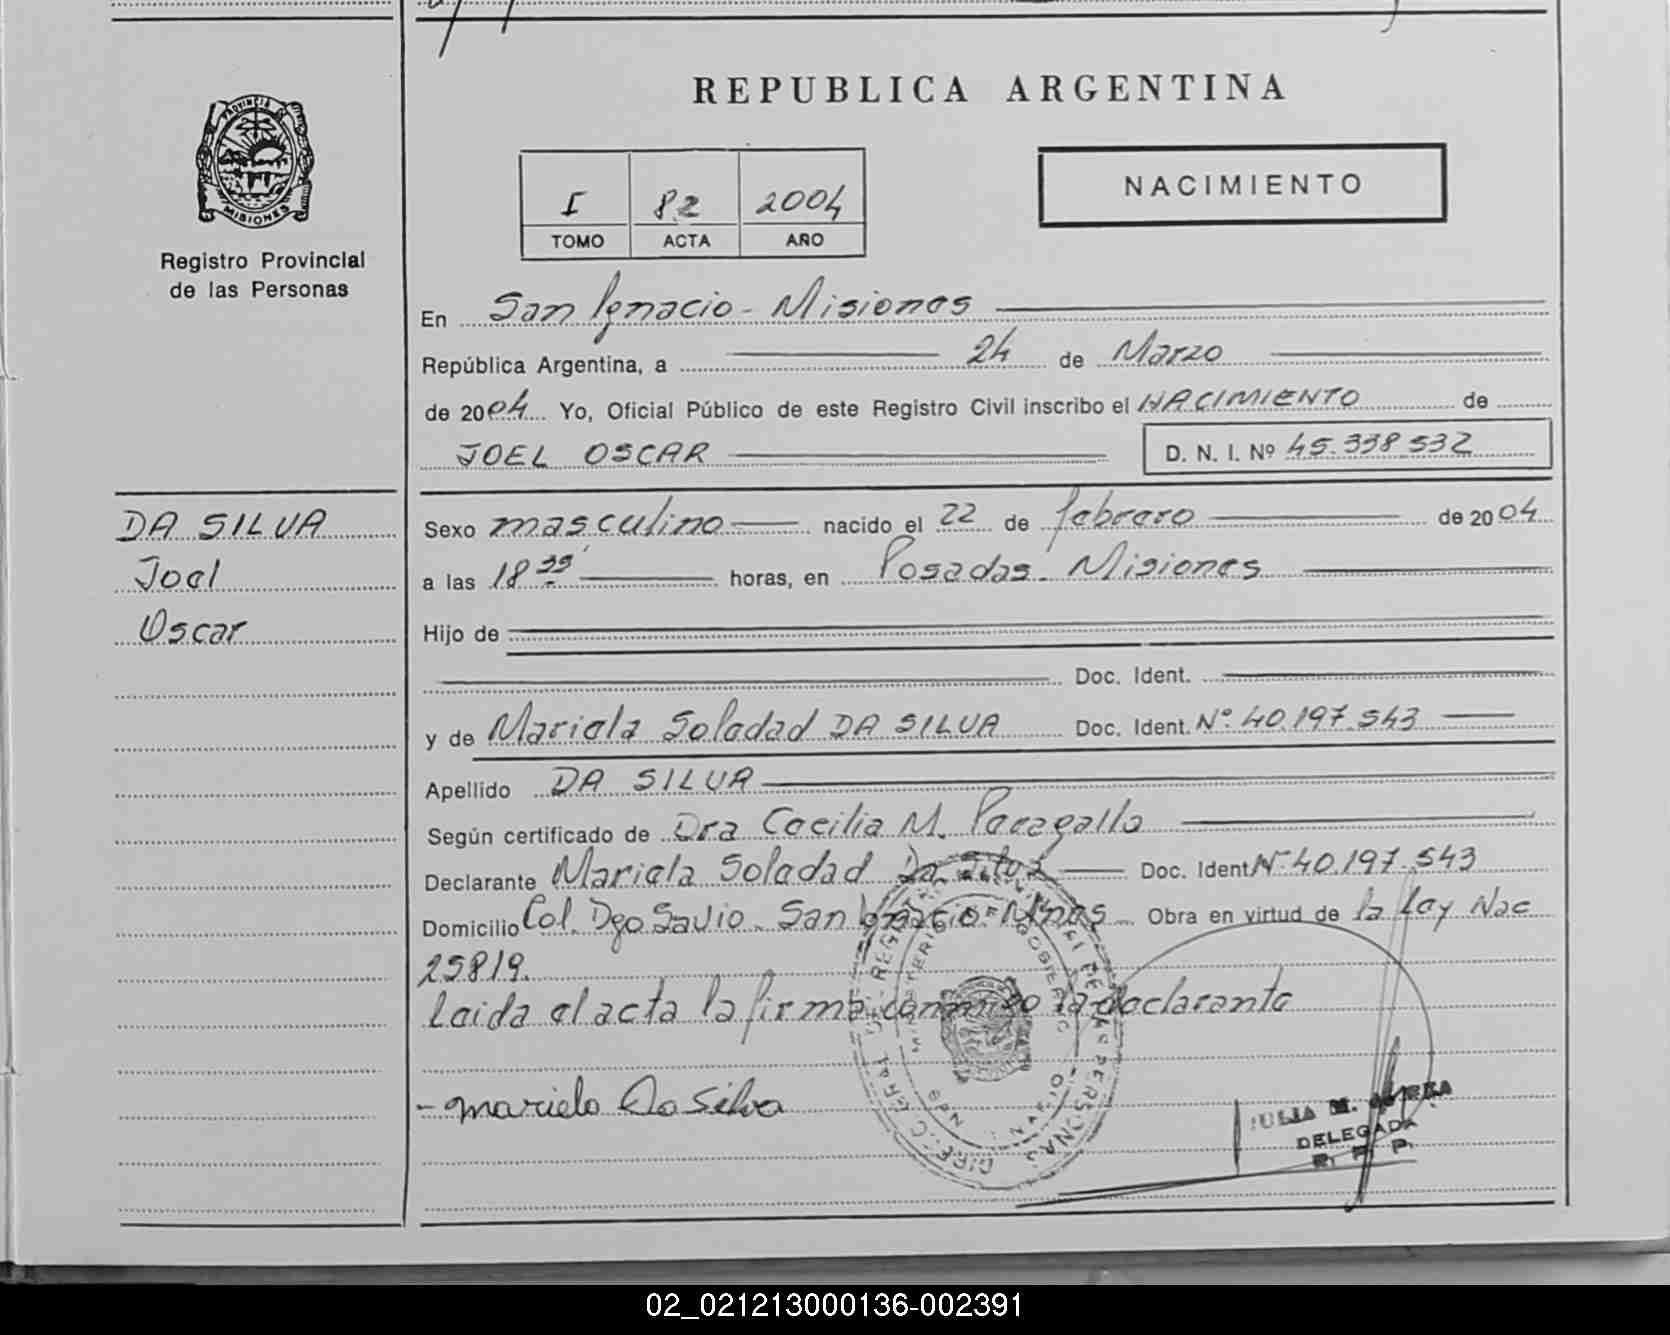 REPUBLICA ARGENTINA
PROVINCIA
MISIONES
Registro Provincial
de las Personas
I 82 2004
TOMO ACTA AÑO
NACIMIENTO
En San Ignacio - Misiones
República Argentina, a 24 de Marzo
de 2004 Yo, Oficial Público de este Registro Civil inscribo el NACIMIENTO de
JOEL OSCAR D. N. I. Nº 45.338.532
DA SILVA
Joel
Oscar
Sexo masculino nacido el 22 de febrero de 2004
a las 18 horas, en Posadas - Misiones
Hijo de
Doc. Ident.
y de Mariela Soledad DA SILVA Doc. Ident. Nº 40.197.543
Apellido DA SILVA
Según certificado de Dra Cecilia M.
Declarante Mariela Soledad Da Silva Doc. Ident Nº 40.197.543
Domicilio Col. Dgo Savio - San Ignacio - Mnes Obra en virtud de la Ley Nac
25819.
Leida el acta la firma conmigo la declarante
- Mariela Da Silva
JULIA M.
DELEGADA
R. P. P.
02_021213000136-002391